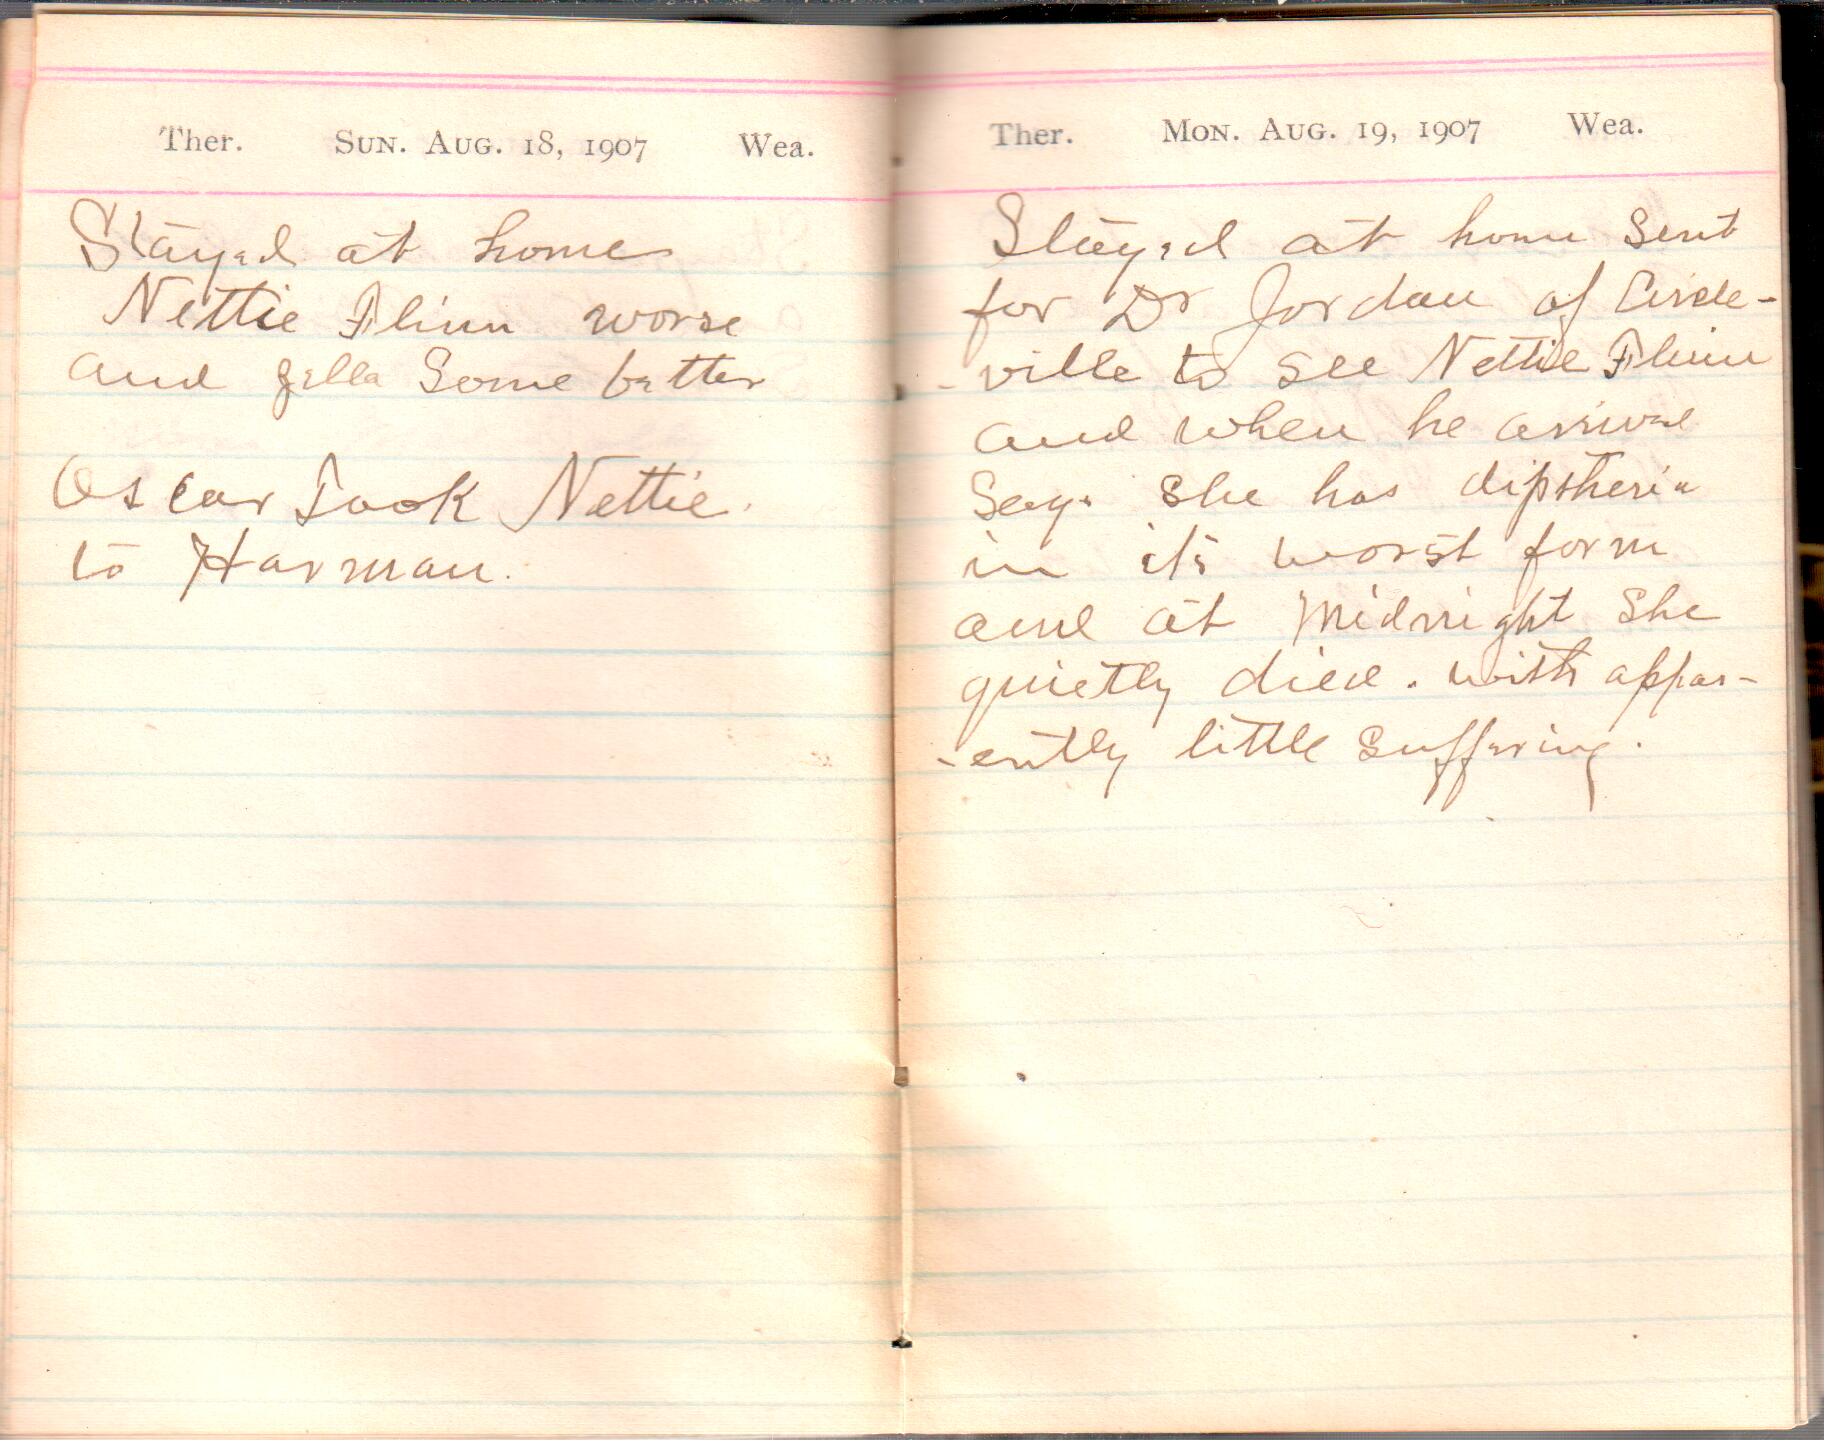 Ther. SUN. AUG. 18, 1907 Wea.
Stayed at home
Nettie Flinn worse
and zella Some better
Oscar Took Nettie.
to Harman.
Ther. MON. AUG. 19, 1907 Wea.
Stayed at home Sent
for Dr Jordan of Circle-
-ville to see Nettie Flinn
and when he arrived
Says she has diptheria
in it's worst form
and at Midnight She
quietly died. with appar-
-ently little suffering.